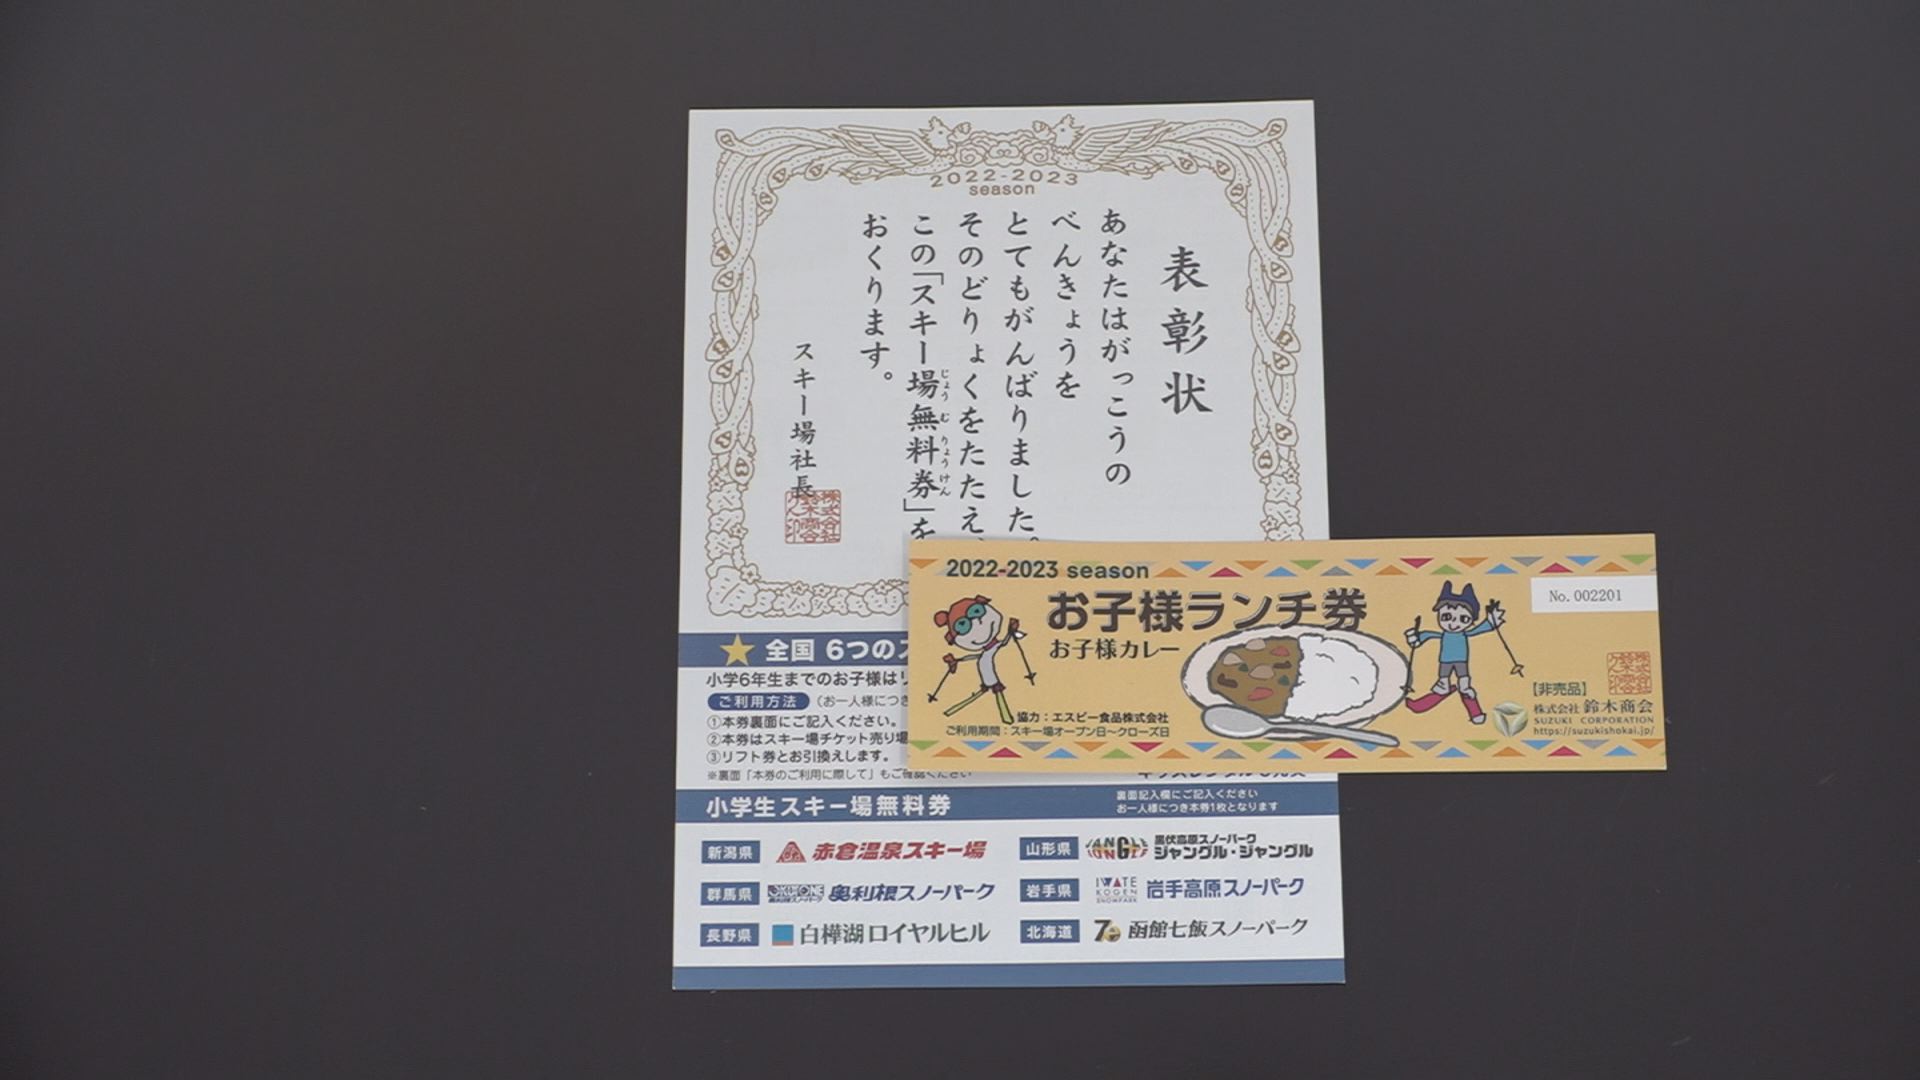 2022-2023
season
表彰状
あなたはがっこうの
べんきょうを
とてもがんばりました。
そのどりょくをたたえ、
この「スキー場無料券」を
じょう む りょう けん
おくります。
スキー場社長
株式会社
鈴木商会
全国 6つの
小学6年生までのお子様は
ご利用方法
(お一人様につき
①本券裏面にご記入ください。
②本券はスキー場チケット売り場
③リフト券とお引換えします。
※裏面「本券のご利用に際して」もご確認ください
2022-2023 season
お子様ランチ券
お子様カレー
No.002201
協力：エスビー食品株式会社
ご利用期間：スキー場オープン日～クローズ日
【非売品】
株式会社 鈴木商会
SUZUKI CORPORATION
https://suzukishokai.jp/
小学生スキー場無料券
裏面記入欄にご記入ください
お一人様につき本券1枚となります
新潟県 赤倉温泉スキー場
群馬県 OKUTONE 奥利根スノーパーク
長野県 白樺湖ロイヤルヒル
山形県 黒伏高原スノーパーク
ジャングル・ジャングル
岩手県 IWATE KOGEN SNOWPARK 岩手高原スノーパーク
北海道 函館七飯スノーパーク